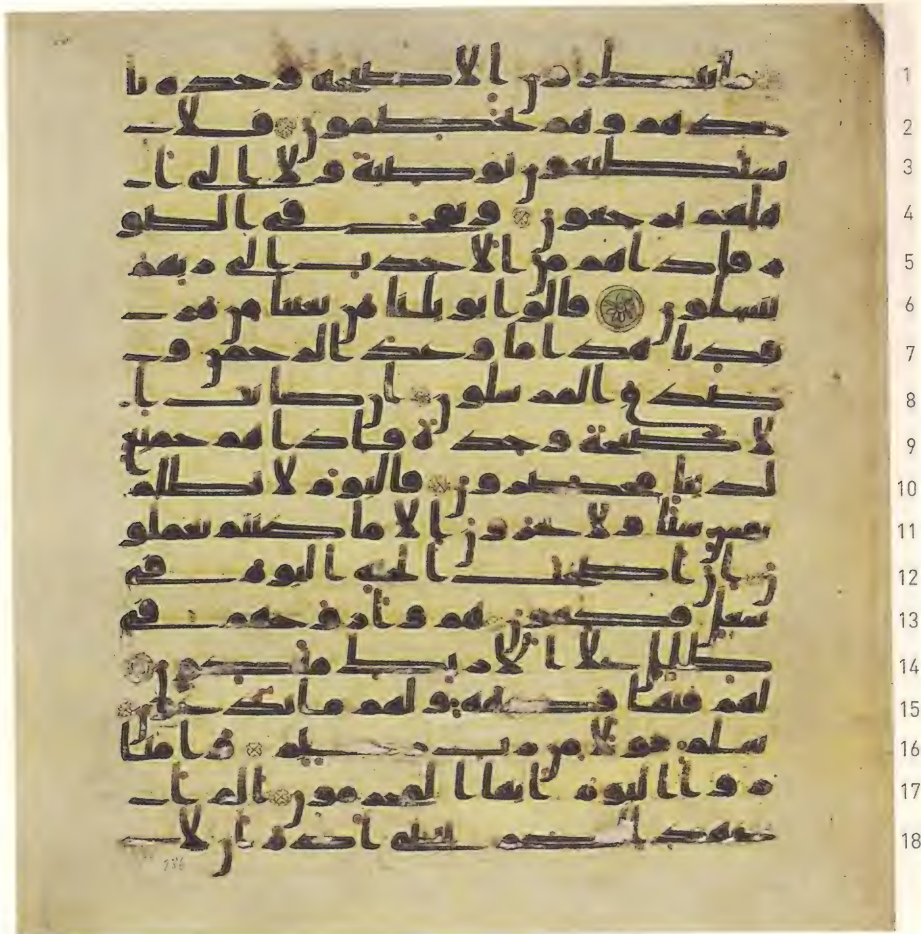 1 ما ينظرون الا صيحة وحدة تا
2 خذهم وهم يخصمون فلا
3 يستطيعون توصية ولا الى ا
4 هلهم يرجعون ونفخ في الصو
5 ر فاذا هم من الاجداث الى ربهم
6 ينسلون قالوا يويلنا من بعثنا من مر
7 قدنا هذا ما وعد الرحمن و
8 صدق المرسلون ان كانت ا
9 لا صيحة وحدة فاذا هم جميع
10 لدينا محضرون فاليوم لا تظلم
11 نفس شيئا ولا تجزون الا ما كنتم تعملو
12 ن ان اصحب الجنة اليوم في
13 شغل فكهون هم وازوجهم في
14 ظلل على الارائك متكئون
15 لهم فيها فكهة ولهم ما يدعون
16 سلم قولا من رب رحيم وامتا
17 زوا اليوم ايها المجرمون الم ا
18 عهد اليكم يبني ادم ان لا